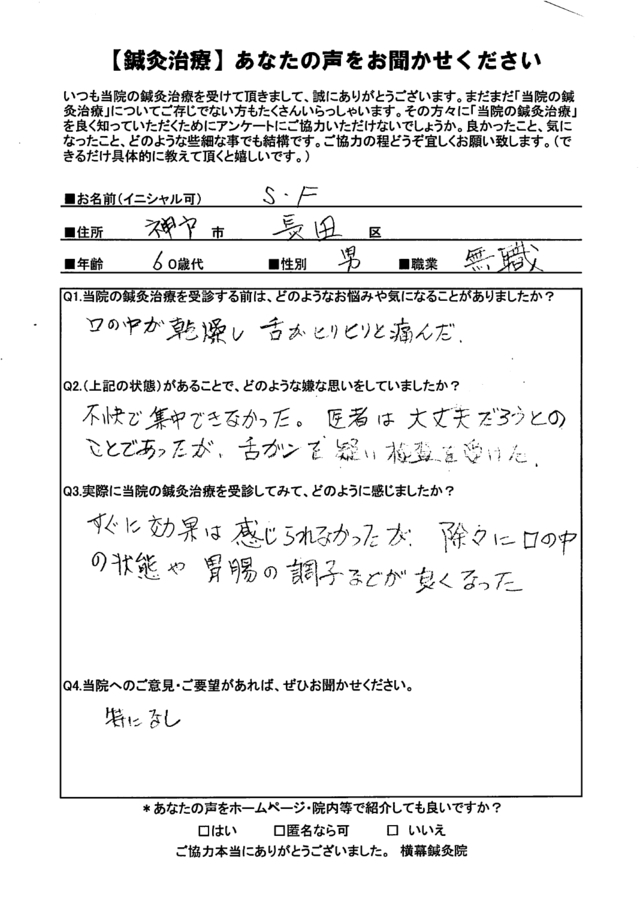 【鍼灸治療】あなたの声をお聞かせください
いつも当院の鍼灸治療を受けて頂きまして、誠にありがとうございます。まだまだ「当院の鍼
灸治療」についてご存じでない方もたくさんいらっしゃいます。その方々に「当院の鍼灸治療」
を良く知っていただくためにアンケートにご協力いただけないでしょうか。良かったこと、気に
なったこと、どのような些細な事でも結構です。ご協力の程どうぞ宜しくお願い致します。（で
きるだけ具体的に教えて頂くと嬉しいです。）
■お名前（イニシャル可） S・F
■住所 神戸 市 長田 区
■年齢 60歳代 ■性別 男 ■職業 無職
Q1.当院の鍼灸治療を受診する前は、どのようなお悩みや気になることがありましたか？
口の中が乾燥し舌がヒリヒリと痛んだ.
Q2.（上記の状態）があることで、どのような嫌な思いをしていましたか？
不快で集中できなかった。医者は大丈夫だろうとの
ことであったが、舌ガンを疑い検査を受けた.
Q3.実際に当院の鍼灸治療を受診してみて、どのように感じましたか？
すぐに効果は感じられなかったが、除々に口の中
の状態や胃腸の調子などが良くなった
Q4.当院へのご意見・ご要望があれば、ぜひお聞かせください。
特になし
*あなたの声をホームページ・院内等で紹介しても良いですか？
□はい □匿名なら可 □いいえ
ご協力本当にありがとうございました。 横幕鍼灸院